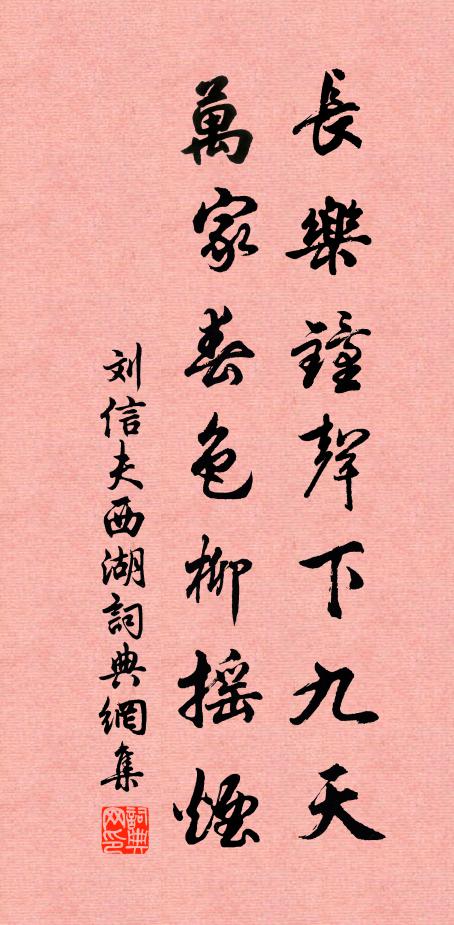 長樂鐘聲下九天
萬家春色柳搖煙
刘信夫西湖詞典網集
詞典网印